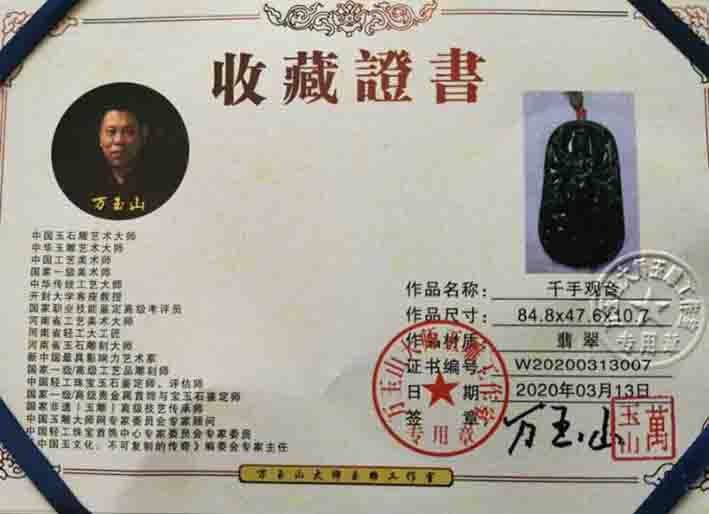 收藏證書
万玉山
中国玉石雕艺术大师
中华玉雕艺术大师
中国工艺美术师
国家一级美术师
中华传统工艺大师
开封大学客座教授
国家职业技能鉴定高级考评员
河南省工艺美术大师
河南省轻工大工匠
河南省玉石雕刻大师
新中国最具影响力艺术家
国家一级/高级工艺品雕刻师
中国轻工珠宝玉石鉴定师、评估师
国家一级/高级贵金属首饰与宝玉石鉴定师
国家非遗(玉雕)高级技艺传承师
中国玉雕大师网专家委员会专家顾问
中国轻工珠宝首饰中心专家委员会专家委员
中国玉文化、不可复制的传奇》编委会专家主任
作品名称: 千手观音
作品尺寸: 84.8x47.6x10.7
作品材质: 翡翠
证书编号: W20200313007
日期 2020年03月13日
签章 万玉山
萬玉山
万玉山大师玉雕工作室
专用章
专用章
万玉山大师玉雕工作室